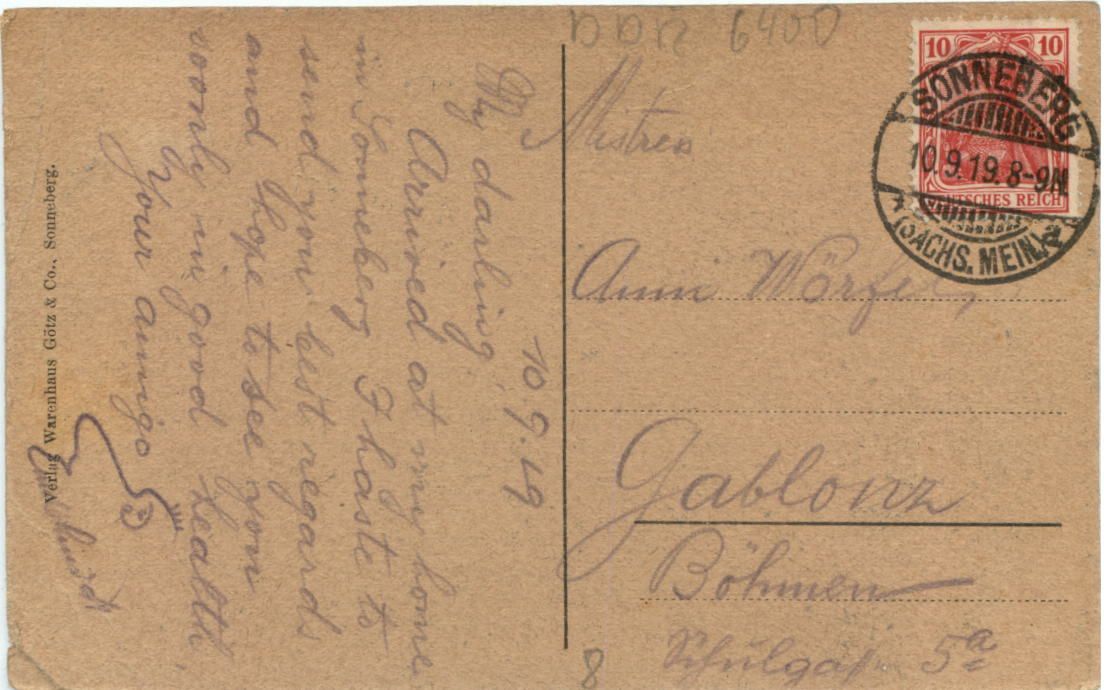 DDR 6400
10 10
DEUTSCHES REICH
SONNEBERG
10.9.19.8-9N.
(SACHS. MEIN.)
10.9.19
My darling
Arrived at my home
in Sonneberg I haste to
send you best regards
and hope to see you
soonly in good health,
Your amigo
Mistress
Anni Wörfel,
Gablonz
Böhmen
Schulgass 5a
8
Verlag Warenhaus Götz & Co., Sonneberg.